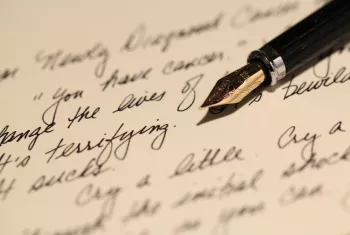 Newly Diagnosed Cancer
"You have cancer."
change the lives of
It's terrifying.
It sucks. Cry a
Cry a little
the initial shock
as you can